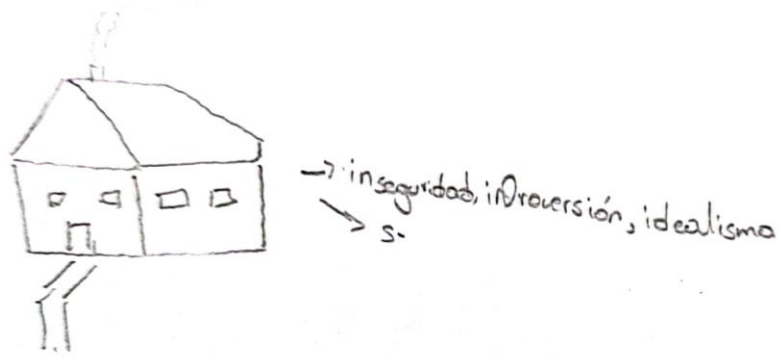 → inseguridad, introversión, idealismo
→ s.